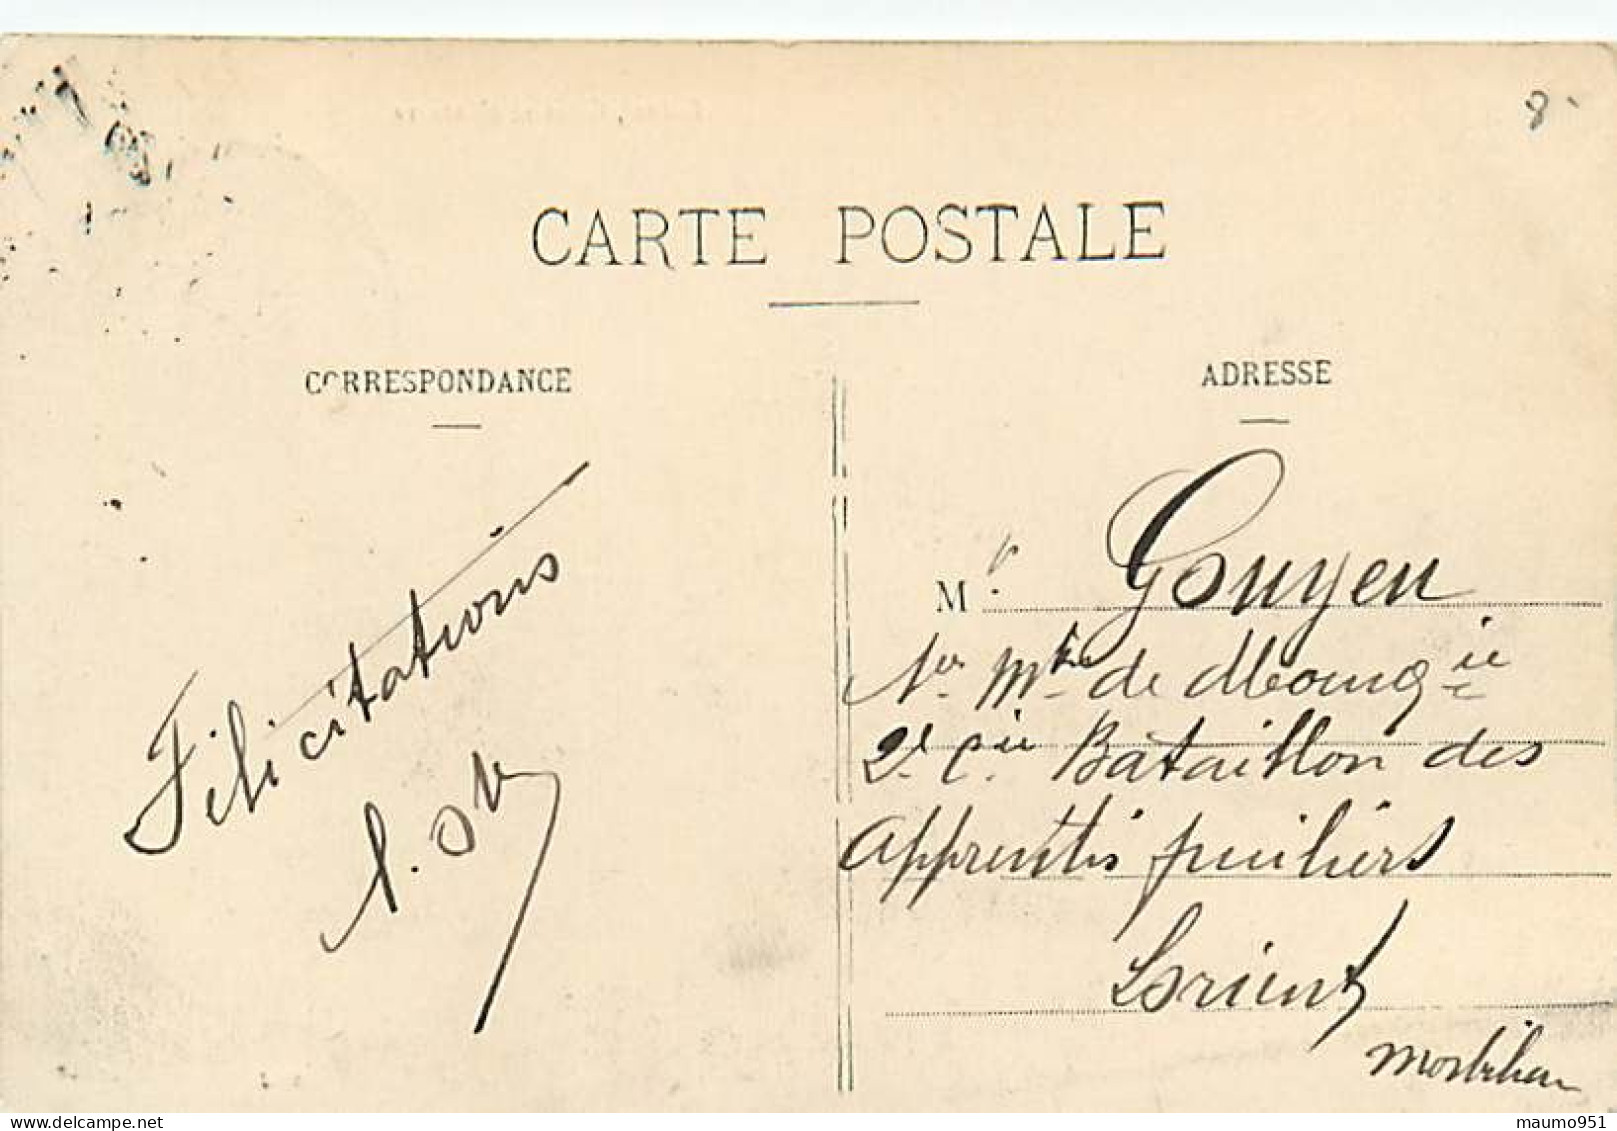 8
CARTE POSTALE
CORRESPONDANCE
Félicitations
ADRESSE
Mr. Gouyen
de
2e Cie Bataillon des
apprentis fusiliers
Lorient
Morbihan
maumo951